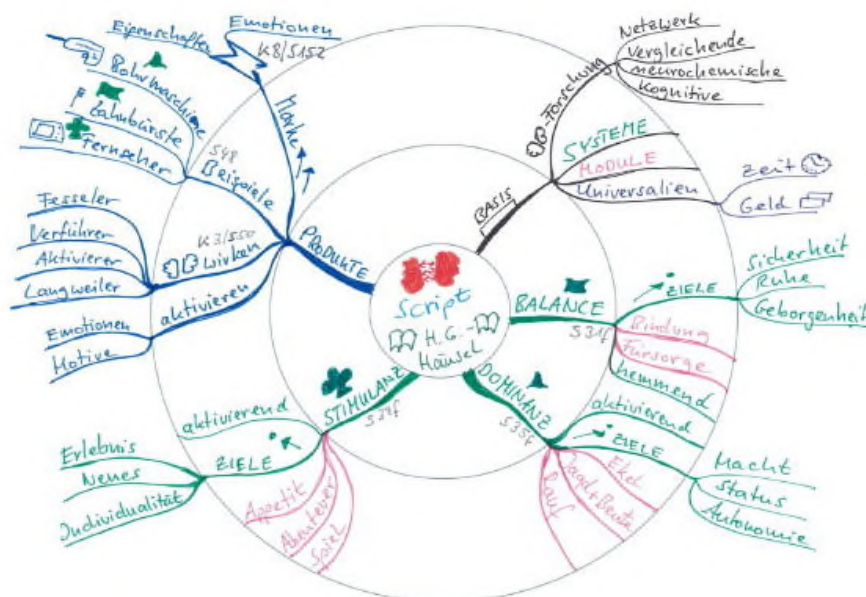 Script
H.G.-
Häusel
BASIS
-Forschung
Netzwerk
Vergleichende
neurochemische
Kognitive
SYSTEME
MODULE
Universalien
Zeit
Geld
BALANCE
S31f
ZIELE
Sicherheit
Ruhe
Geborgenheit
Bindung
Fürsorge
hemmend
DOMINANZ
S35f
aktivierend
ZIELE
Macht
Status
Autonomie
Ekel
Jagd+Beute
Rauf
STIMULANZ
aktivierend
ZIELE
Erlebnis
Neues
Individualität
Appetit
Abenteuer
Spiel
PRODUKTE
Marke
Eigenschaften
Emotionen
K8/S152
Beispiele
S48
Bohrmaschine
Zahnbürste
Fernseher
wirken
K3/S50
Fesseler
Verführer
Aktivierer
Langweiler
aktivieren
Emotionen
Motive